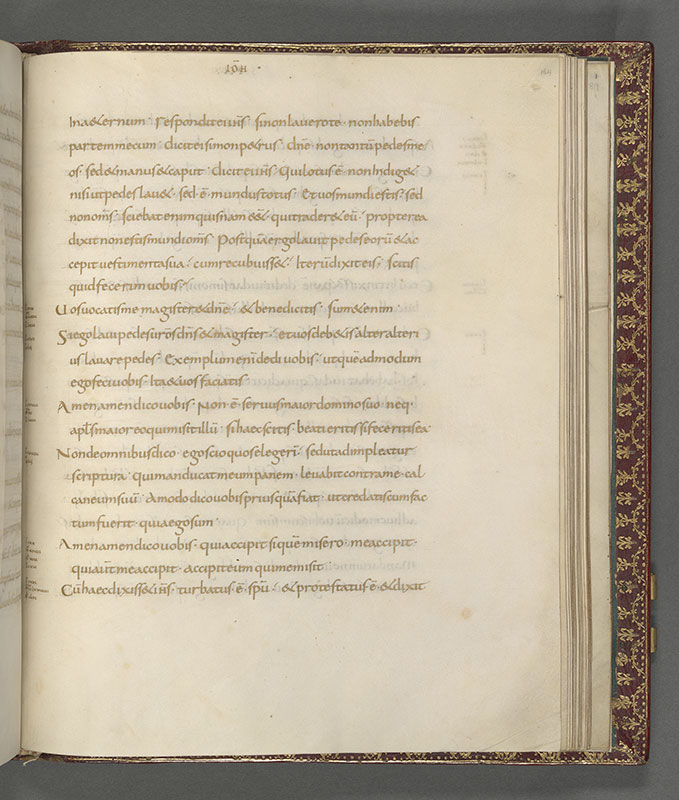 IOH
In aeternum · respondit ei ihs̄ · si non lavero te · non habebis
partem mecum · dicit ei simon petrus · dn̄e · non tantū pedes me
os · sed et manus et caput · dicit ei ihs̄ · Qui lotus ē · non Indiget
nisi ut pedes lavet · sed ē mundus totus · Et vos mundi estis · sed
non om̄s · sciebat enim quisnam esset qui traderet eū · propterea
dixit non estis mundi om̄s · Postquā ergo lavit pedes eorū et ac
cepit vestimenta sua · cum recubuisset · Iterū dixit eis · scitis
quid fecerim vobis ·
Vos vocatis me magister et dn̄e · et bene dicitis · sum etenim ·
Si ego lavi pedes urōs dn̄s et magister · et vos debetis alter alteri
us lavare pedes · Exemplum enī dedi vobis · ut quēadmodum
ego feci vobis · Ita et vos faciatis ·
Amen amen dico vobis · Non ē servus maior domino suo · neq·
apls̄ maior eo qui misit illū · si haec scitis · beati eritis si feceritis ea ·
Non de omnibus dico · ego scio quos elegerī · sed ut adimpleatur
scriptura · qui manducat meum panem · levabit contra me cal
caneum suū · A modo dico vobis prius quā fiat · ut credatis cum fac
tum fuerit · quia ego sum ·
Amen amen dico vobis · qui accipit si quē misero · me accipit ·
qui aūt me accipit · accipit eum qui me misit
Cū haec dixisset ihs̄ · turbatus ē spū · et protestatus ē · et dixit